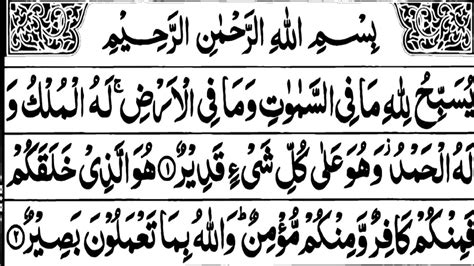 بِسْمِ اللهِ الرَّحْمٰنِ الرَّحِيْمِ
يُسَبِّحُ لِلّٰهِ مَا فِي السَّمٰوٰتِ وَمَا فِي الْاَرْضِ ۚ لَهُ الْمُلْكُ وَ
لَهُ الْحَمْدُ ؗ وَهُوَ عَلٰى كُلِّ شَيْءٍ قَدِيْرٌ ۝۱ هُوَ الَّذِيْ خَلَقَكُمْ
فَمِنْكُمْ كَافِرٌ وَّمِنْكُمْ مُّؤْمِنٌ ؕ وَاللّٰهُ بِمَا تَعْمَلُوْنَ بَصِيْرٌ ۝۲